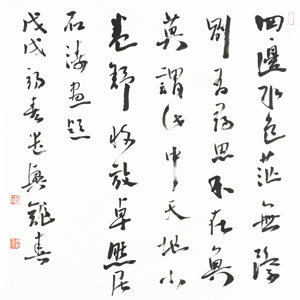 四邊水色茫無際
別有尋思不在魚
莫謂此中天地小
卷舒收放卓然居
石濤画題
戊戌初春遣興